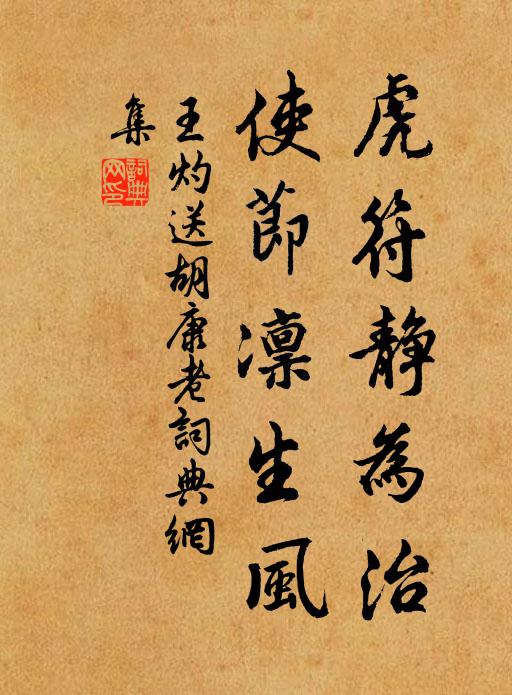 虎符静為治
使節凛生風
王灼送胡康老詞典網
集
詞典
网印